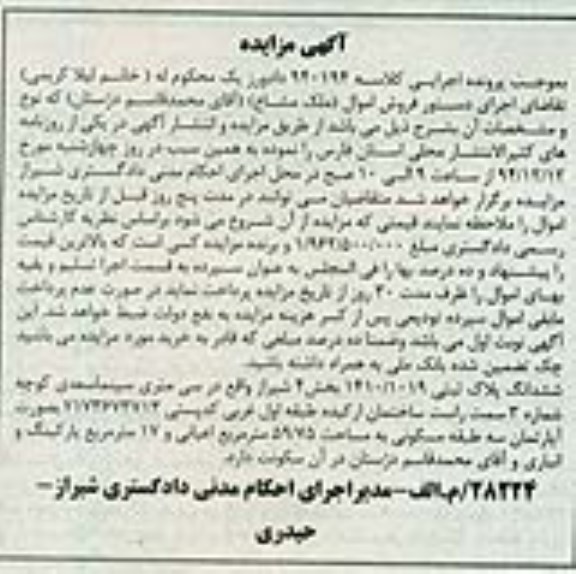 آگهی مزایده
بموجب پرونده اجرایی کلاسه ۹۴۰۱۹۴ دادورز یک محکوم له ( خانم لیلا کریمی)
تقاضای اجرای دستور فروش اموال (ملک مشاع) (آقای محمدقاسم دژستان) که نوع
و مشخصات آن بشرح ذیل می باشد از طریق مزایده و انتشار آگهی در یکی از روزنامه
های کثیرالانتشار محلی استان فارس را نموده به همین سبب در روز چهارشنبه مورخ
۹۴/۱۲/۱۲ از ساعت ۹ الی ۱۰ صبح در محل اجرای احکام مدنی دادگستری شیراز
مزایده برگزار خواهد شد متقاضیان می توانند در مدت پنج روز قبل از تاریخ مزایده
اموال را ملاحظه نمایند قیمتی که مزایده از آن شروع می شود براساس نظریه کارشناس
رسمی دادگستری مبلغ ۱/۹۶۲/۵۰۰/۰۰۰ و برنده مزایده کسی است که بالاترین قیمت
را پیشنهاد و ده درصد بها را فی المجلس به عنوان سپرده به قسمت اجرا تسلیم و بقیه
بهای اموال را ظرف مدت ۳۰ روز از تاریخ مزایده پرداخت نماید در صورت عدم پرداخت
مابقی اموال سپرده تودیعی پس از کسر هزینه مزایده به نفع دولت ضبط خواهد شد. این
آگهی نوبت اول می باشد وضمنا ده درصد مبلغی که قادر به خرید مورد مزایده می باشید
چک تضمین شده بانک ملی به همراه داشته باشید.
ششدانگ پلاک ثبتی ۱۴۱۰/۱۰۱۹ بخش۴ شیراز واقع در سی متری سینماسعدی کوچه
شماره ۳ سمت راست ساختمان ارکیده طبقه اول غربی کدپستی ۷۱۷۳۶۷۳۷۱۳ بصورت
آپارتمان سه طبقه مسکونی به مساحت ۵۹/۷۵ مترمربع اعیانی و ۱۷ مترمربع پارکینگ و
انباری و آقای محمدقاسم دژستان در آن سکونت دارد.
۲۸۲۲۴/م.الف-مدیراجرای احکام مدنی دادگستری شیراز-
حیدری